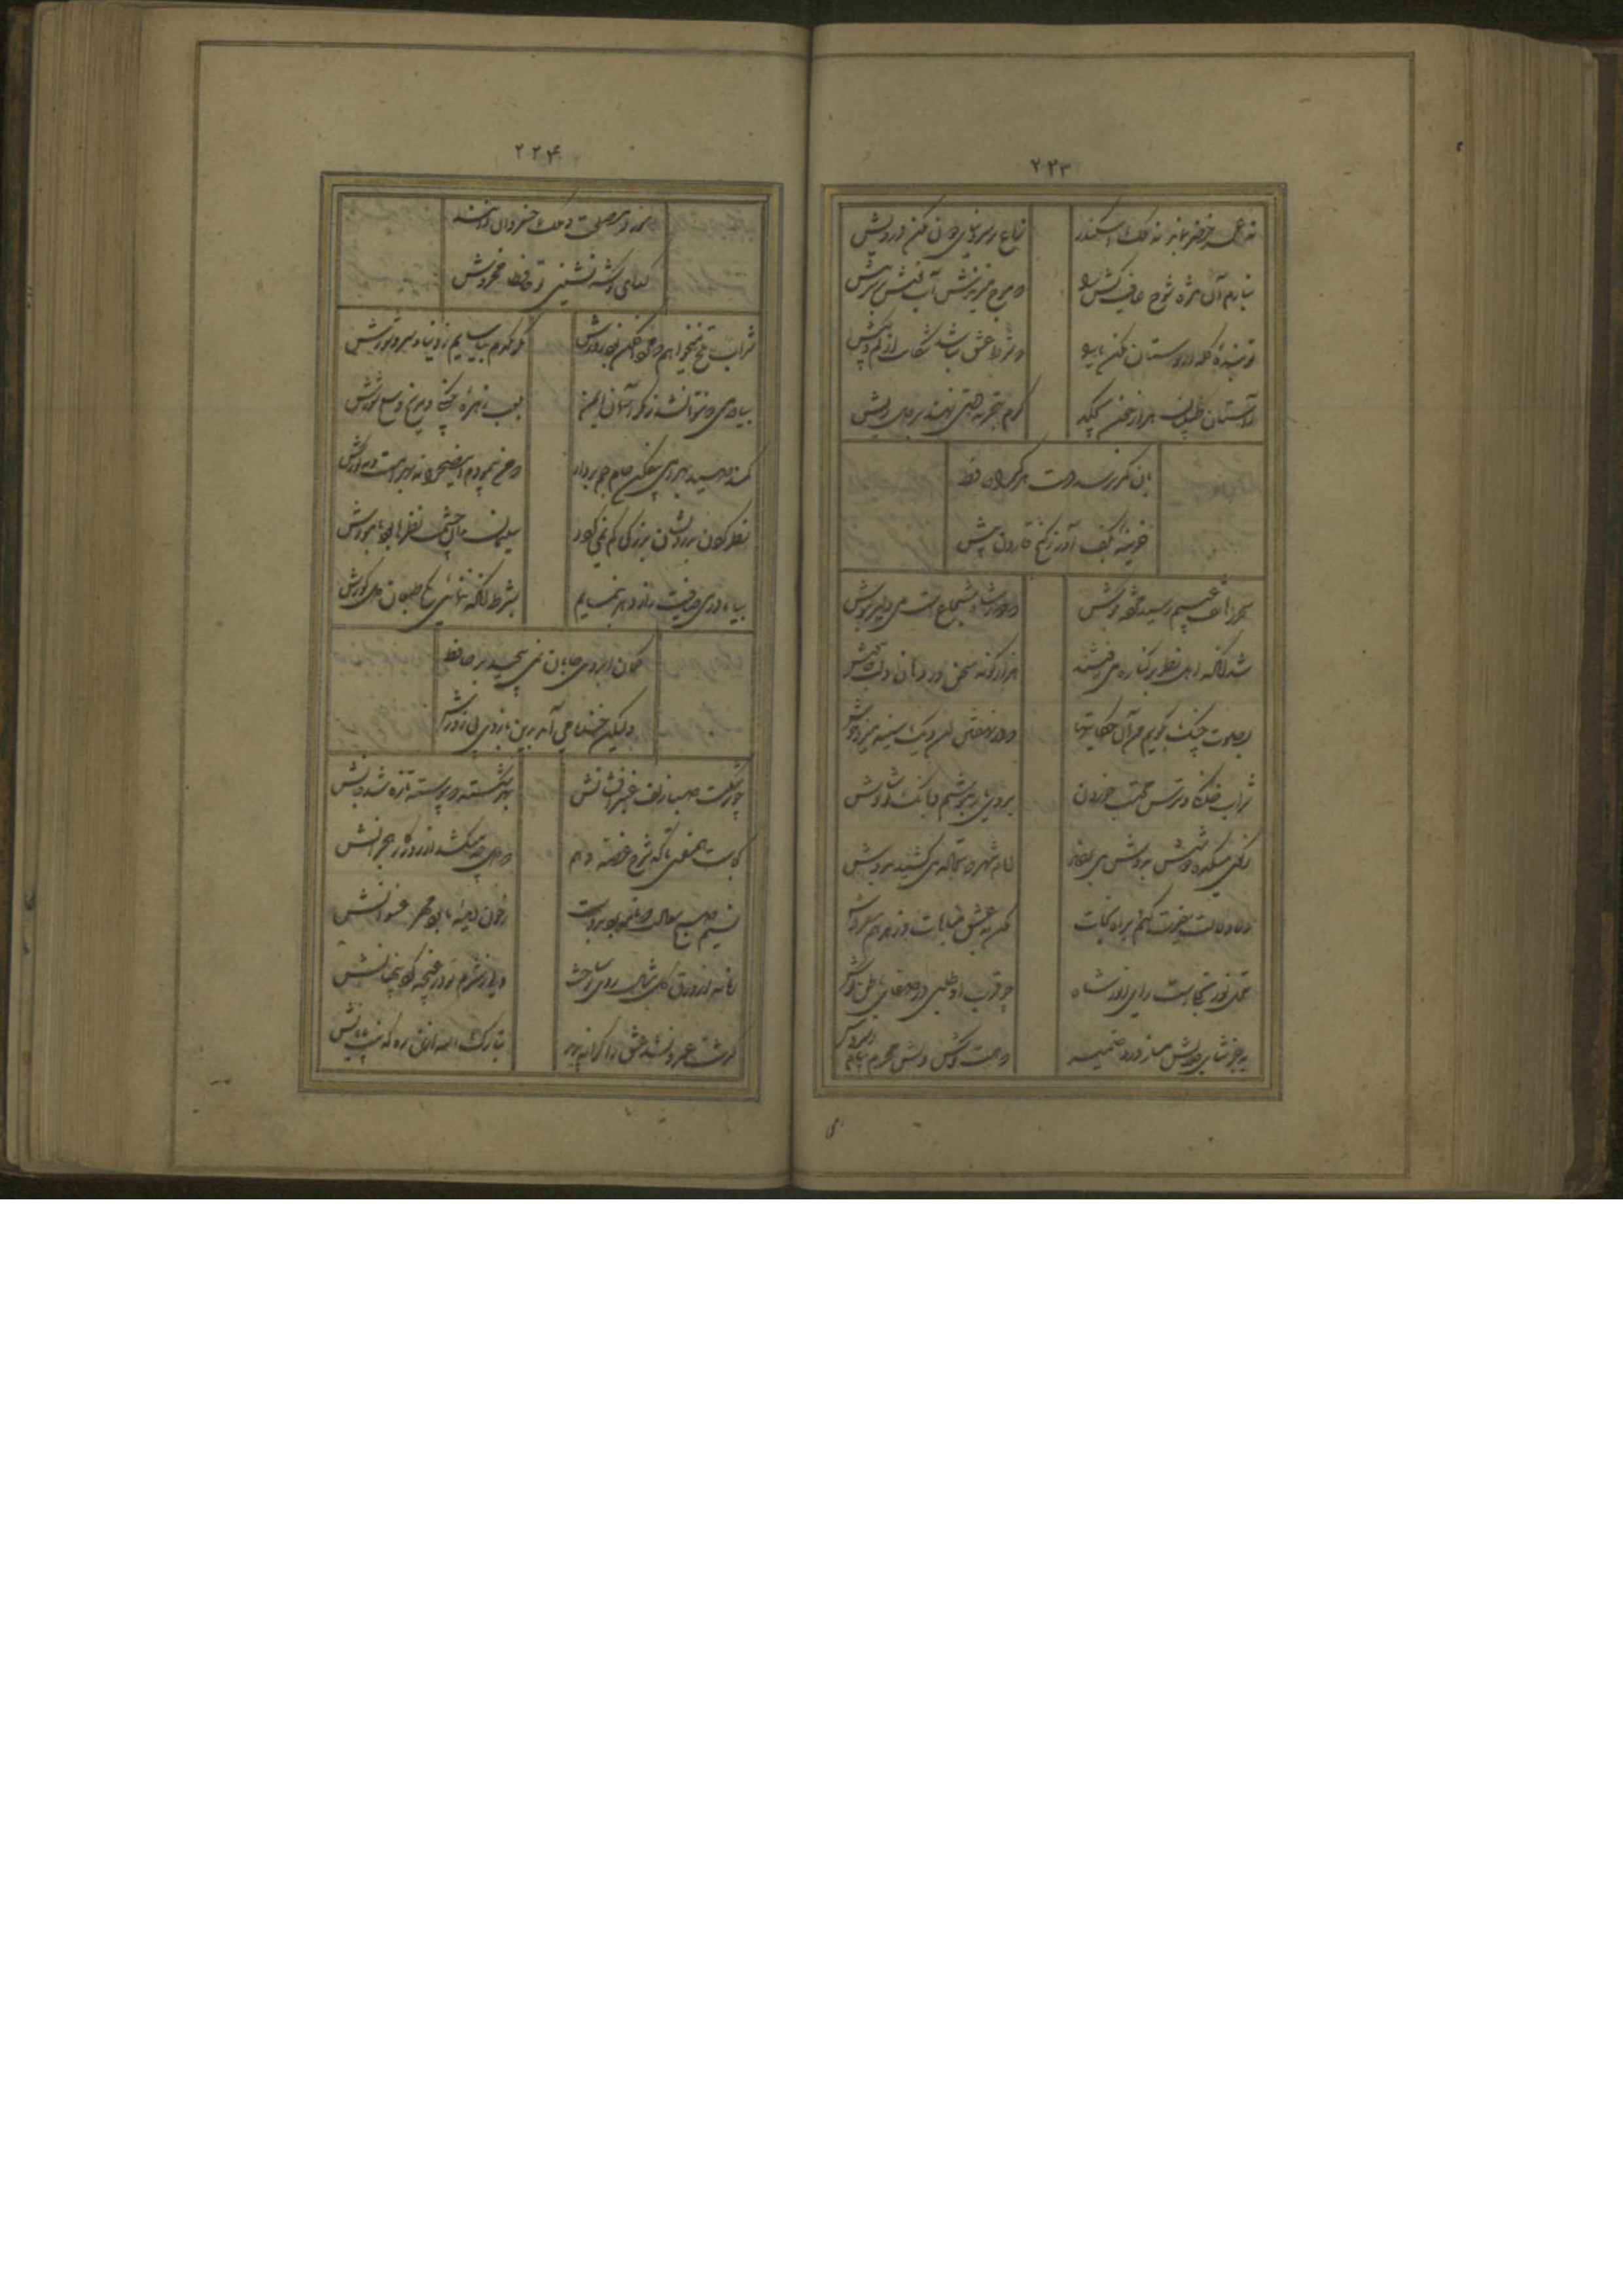 ۲۲۳
نه عمر خضر بماند نه ملک اسکندر
نزاع بر سر دنیای دون مکن درویش
بنازم آن مژه شوخ عافیت کش را
که موج میزندش آب نوش بر سر نیش
تو بنده گله از دوستان مکن ایدل
که شرط عشق نباشد شکایت از کم و بیش
ز آستین طبیبان هزار خون بچکد
گرم بتجربه دستی نهند بر دل ریش
بان کمر نرسد دست هر گدا حافظ
خزینه بکف آور ز گنج قارون بیش
سحر ز هاتف غیبم رسید مژده بگوش
که دور شاه شجاع است می دلیر بنوش
شد آنکه اهل نظر بر کناره می‌رفتند
هزار گونه سخن در دهان و لب خاموش
بصوت چنگ بگویم من آن حکایتها
که از نهفتن آن دیگ سینه میزد جوش
شراب خانگی ترس محتسب خورده
بروی یار بنوشیم و بانگ نوشانوش
ز کوی میکده دوشش بدوش می‌بردند
امام شهر که سجاده میکشید بدوش
دلا دلالت خیرت کنم براه نجات
مکن بفسق مباهات و زهد هم مفروش
محل نور تجلیست رای انور شاه
چو قرب او طلبی در صفای باطن کوش
بجز ثنای جلالش مساز ورد ضمیر
که هست گوش دلش محرم پیام سروش
۲۲۴
رموز مصلحت ملک خسروان دانند
گدای گوشه نشینی تو حافظا مخروش
شراب تلخ میخواهم که مردافکن بود زورش
که یکدم بیاسایم ز دنیا و شر و شورش
بیاور می که نتوان شد ز مکر آسمان ایمن
بلعب زهره چنگی و مریخ سلحشورش
کمند صید بهرامی بیفکن جام جم بردار
که من پیمودم این صحرا نه بهرامست و نه گورش
نظر کردن بدرویشان بزرگی کم نمی‌کند
سلیمان با چنان حشمت نظرها بود با مورش
بیا تا در می صافیت راز دهر بنمایم
بشرط آنکه ننمائی بکج طبعان دل کورش
کمان ابروی جانان نمی‌پیچد سر از حافظ
ولیکن خنده می‌آید برین بازوی بی زورش
چو بر شکست صبا زلف عنبر افشانش
بهر شکسته که پیوست تازه شد جانش
کجاست همنفسی تا که شرح غصه دهم
که دل چه میکشد از روزگار هجرانش
نسیم صبح وفا نامه که برد بدوست
ز خون دیده ما بود مهر عنوانش
زمانه از ورق گل مثال روی تو ساخت
ولی ز شرم تو در غنچه کرد پنهانش
گذشت عمر و نشد عشق را کرانه پدید
تبارک الله ازین ره که نیست پایانش